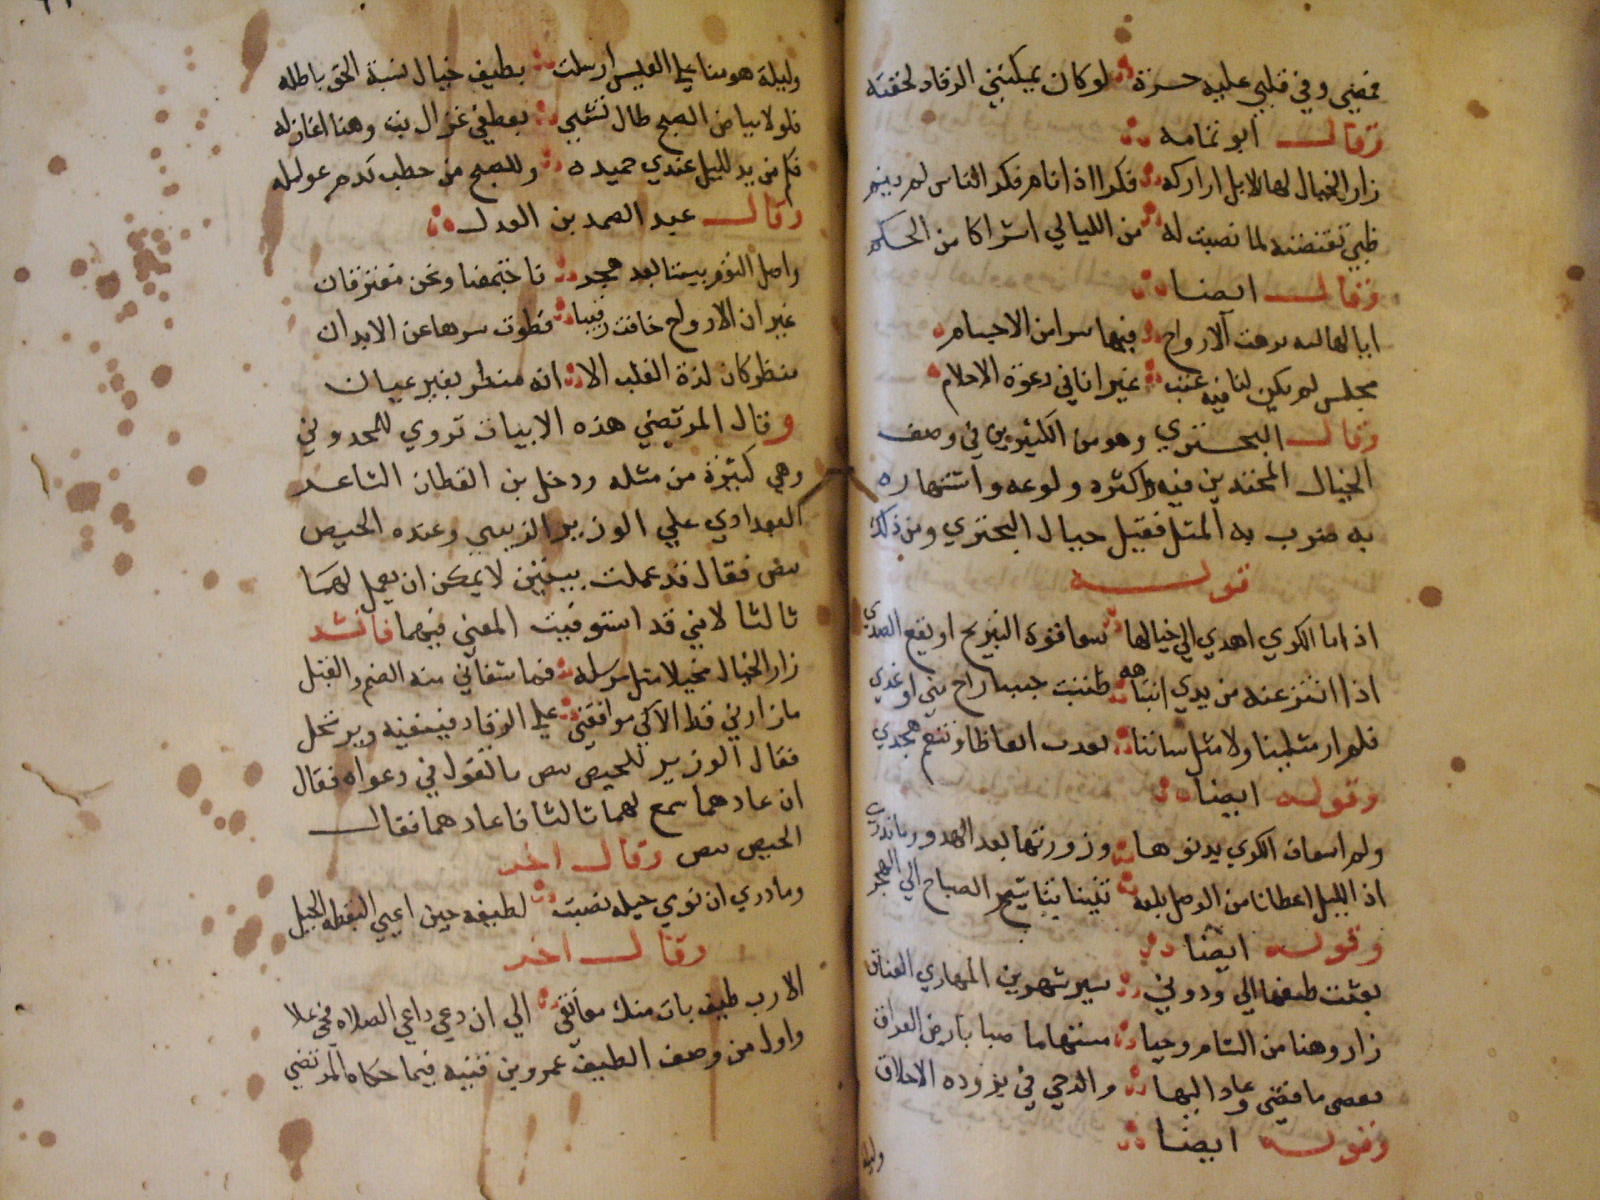 فمضى وفي قلبي عليه حسرة لو كان يمكنني الرقاد لحقته
وقال ابو تمامه
زار الخيال لها لا بل ازاركه فكر اذا نام فكر الناس لم ينم
ظبي تقنصته لما نصبت له من الليالي اشراكا من الحلم
وقال ايضا
الارواح فيها سرا من الاجسام
مجلس لم يكن لنا فيه عيب غير انا في دعوة الاحلام
وقال البحتري وهو من الكثيرين في وصف
الخيال المجيدين فيه واكثره ولوعه واشتهاره
به ضرب به المثل فقيل خيال البحتري ومن ذلك
قوله
اذا ما الكرى اهدى الي خياله شفا قربه التبريح او نقع الصدى
اذا انتزعته من يدي انتباهه ظننت حبيبا راح مني او غدى
فلم ار مثلينا ولا مثل شاننا نعذب ايقاظا وننعم هجدى
وقوله ايضا
وزورتها بعد الهدو وما تدري
اذا الليل اعطانا من الوصل بلغة ثنينا تباشير الصباح الي الهجر
وقوله ايضا
بعثت طيفها الي ودوني سير شهرين المهاري العتاق
زار وهنا من الشام وحيا مستهاما صبا بارض العراق
فقضى ما قضى وعاد اليها والدجي في بروده الاخلاق
وقوله ايضا
وليله
وليلة هومنا على العيس ارسلت بطيف خيال يشبه الحق باطله
فلولا بياض الصبح طال تشبثي بعطفي غزال بت وهنا اغازله
فكم من يد لليل عندي حميده وللصبح من خطب تذم غوايله
وقال عبد الصمد بن المعدل
واصل النوم بيننا بعد هجر فاجتمعنا ونحن مفترقان
غير ان الارواح خافت رقيبا فطوت سرها عن الابدان
منظر كان لذة القلب الا انه منظر بغير عيان
وقال المرتضى هذه الابيات تروي للحمدوني
وهي كبيرة من مثله ودخل بن القطان الشاعر
البغدادي علي الوزير الزينبي وعنده الحيص
بيص فقال قد عملت بيتين لا يمكن ان يعمل لهما
ثالثا لانني قد استوفيت المعنى فيهما فانشد
زار الخيال بخيلا مثل مرسله فما شفاني منه الضم والقبل
ما زارني قط الا كي يوافقني على الرقاد فينفيه ويرتحل
فقال الوزير للحيص بيص ما تقول في دعواه فقال
ان عادهما سمع لهما ثالثا فاعادهما فقال
الحيص بيص وقال اخر
وما درى ان نومي حيلة نصبت لطيفه حين اعيي اليقظه الحيل
وقال اخر
الا رب طيف بات منك معانقي الي ان دعى داعي الصلاه
واول من وصف الطيف عمرو بن قميه فيما حكاه المرتضى